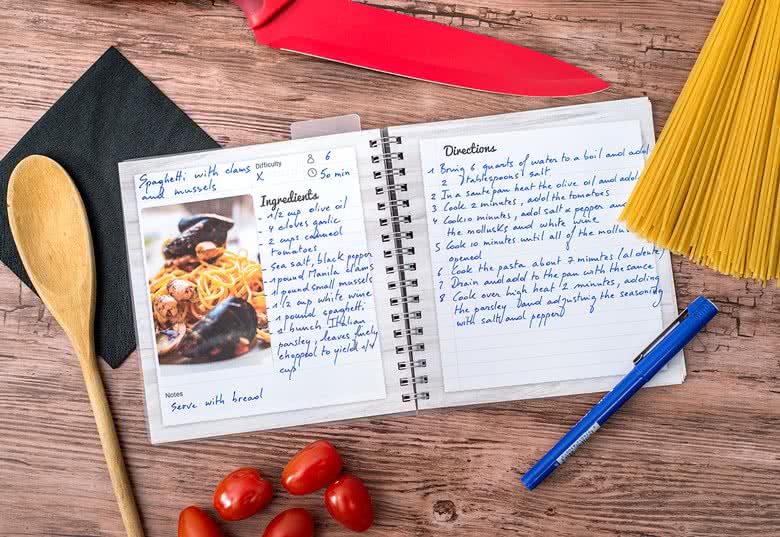 Spaghetti with clams
and mussels
Difficulty
X
6
50 min
Ingredients
- 1/2 cup olive oil
- 4 cloves garlic
- 2 cups canned
tomatoes
- Sea salt, black pepper
- 1 pound Manila clams
- 1 pound small mussels
- 1/2 cup white wine
- 1 pound spaghetti
- 1 bunch Italian
parsley, leaves finely
chopped to yield 1/4
cup
Notes
Serve with bread
Directions
1 Bring 6 quarts of water to a boil and add
2 tablespoons salt
2 In a sautepan heat the olive oil and add
3 Cook 2 minutes, add the tomatoes
4 Cook 10 minutes, add salt & pepper and
the mollusks and white wine
5 Cook 10 minutes until all of the
opened
6 Cook the pasta about 7 minutes (al dente)
7 Drain and add to the pan with the sauce
8 Cook over high heat 2 minutes, adding
the parsley and adjusting the seasoning
with salt and pepper